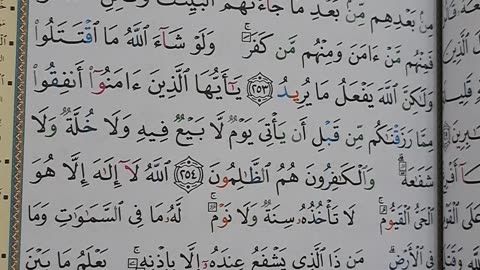 مِنۢ بَعْدِهِم مِّنۢ بَعْدِ مَا جَآءَتْهُمُ ٱلْبَيِّنَٰتُ وَلَٰكِنِ
فَمِنْهُم مَّنْ ءَامَنَ وَمِنْهُم مَّن كَفَرَ ۚ وَلَوْ شَآءَ ٱللَّهُ مَا ٱقْتَتَلُوا۟
وَلَٰكِنَّ ٱللَّهَ يَفْعَلُ مَا يُرِيدُ ﴿٢٥٣﴾ يَٰٓأَيُّهَا ٱلَّذِينَ ءَامَنُوٓا۟ أَنفِقُوا۟
مِمَّا رَزَقْنَٰكُم مِّن قَبْلِ أَن يَأْتِىَ يَوْمٌ لَّا بَيْعٌ فِيهِ وَلَا خُلَّةٌ وَلَا
شَفَٰعَةٌ ۗ وَٱلْكَٰفِرُونَ هُمُ ٱلظَّٰلِمُونَ ﴿٢٥٤﴾ ٱللَّهُ لَآ إِلَٰهَ إِلَّا هُوَ
ٱلْحَىُّ ٱلْقَيُّومُ ۚ لَا تَأْخُذُهُۥ سِنَةٌ وَلَا نَوْمٌ ۚ لَّهُۥ مَا فِى ٱلسَّمَٰوَٰتِ وَمَا
فِى ٱلْأَرْضِ ۗ مَن ذَا ٱلَّذِى يَشْفَعُ عِندَهُۥٓ إِلَّا بِإِذْنِهِۦ ۚ يَعْلَمُ مَا بَيْنَ